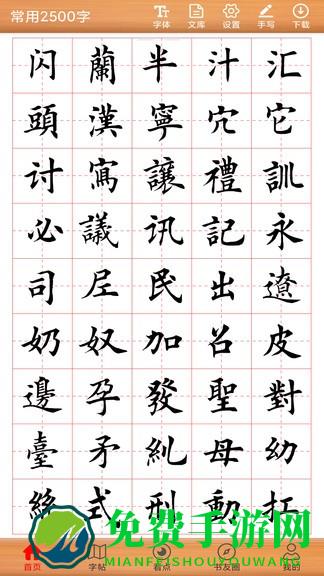 常用2500字
字体 文库 设置 手写 下载
闪蘭半汁汇
頭漢寧穴它
讨寫讓禮訓
必議讯記永
司尼民出遼
奶奴加召皮
邊孕發聖對
臺矛糾母幼
絲式刑動扛
免费手游网
MIANFEISHOUYOUWANG
首页 字帖 看点 书友圈 我的